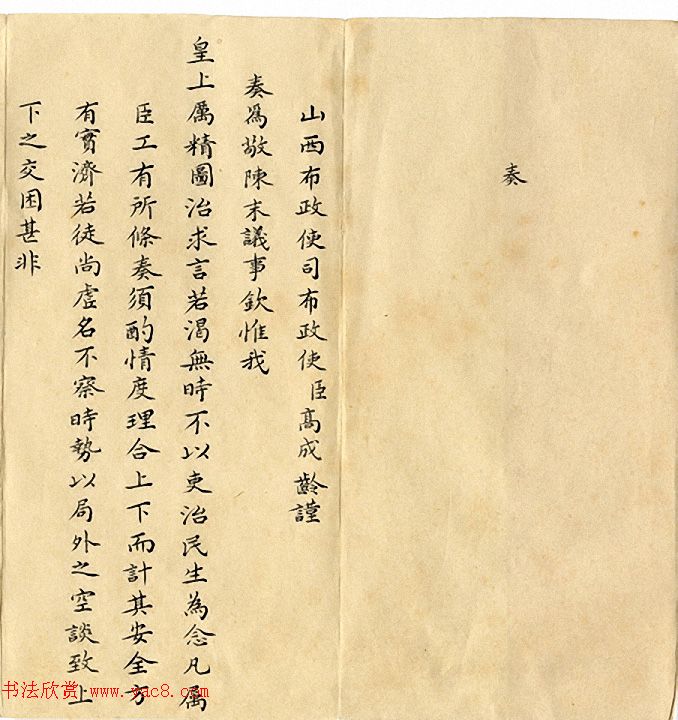 奏
山西布政使司布政使臣高成齡謹
奏爲敬陳末議事欽惟我
皇上厲精圖治求言若渴無時不以吏治民生為念凡属
臣工有所條奏須酌情度理合上下而計其安全方
有實濟若徒尚虛名不察時勢以局外之空談致上
下之交困甚非
书法欣赏 www.yac8.com